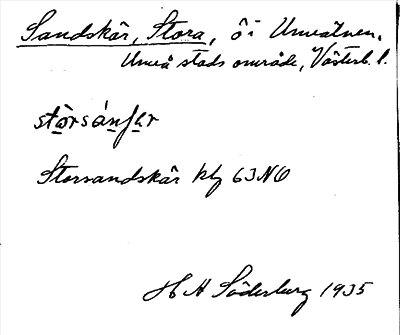 Sandskär, Stora, ö i Umeälven.
Umeå stads område, Västerb. l.
Storsandskär kbl 63NO
H A Söderberg 1935